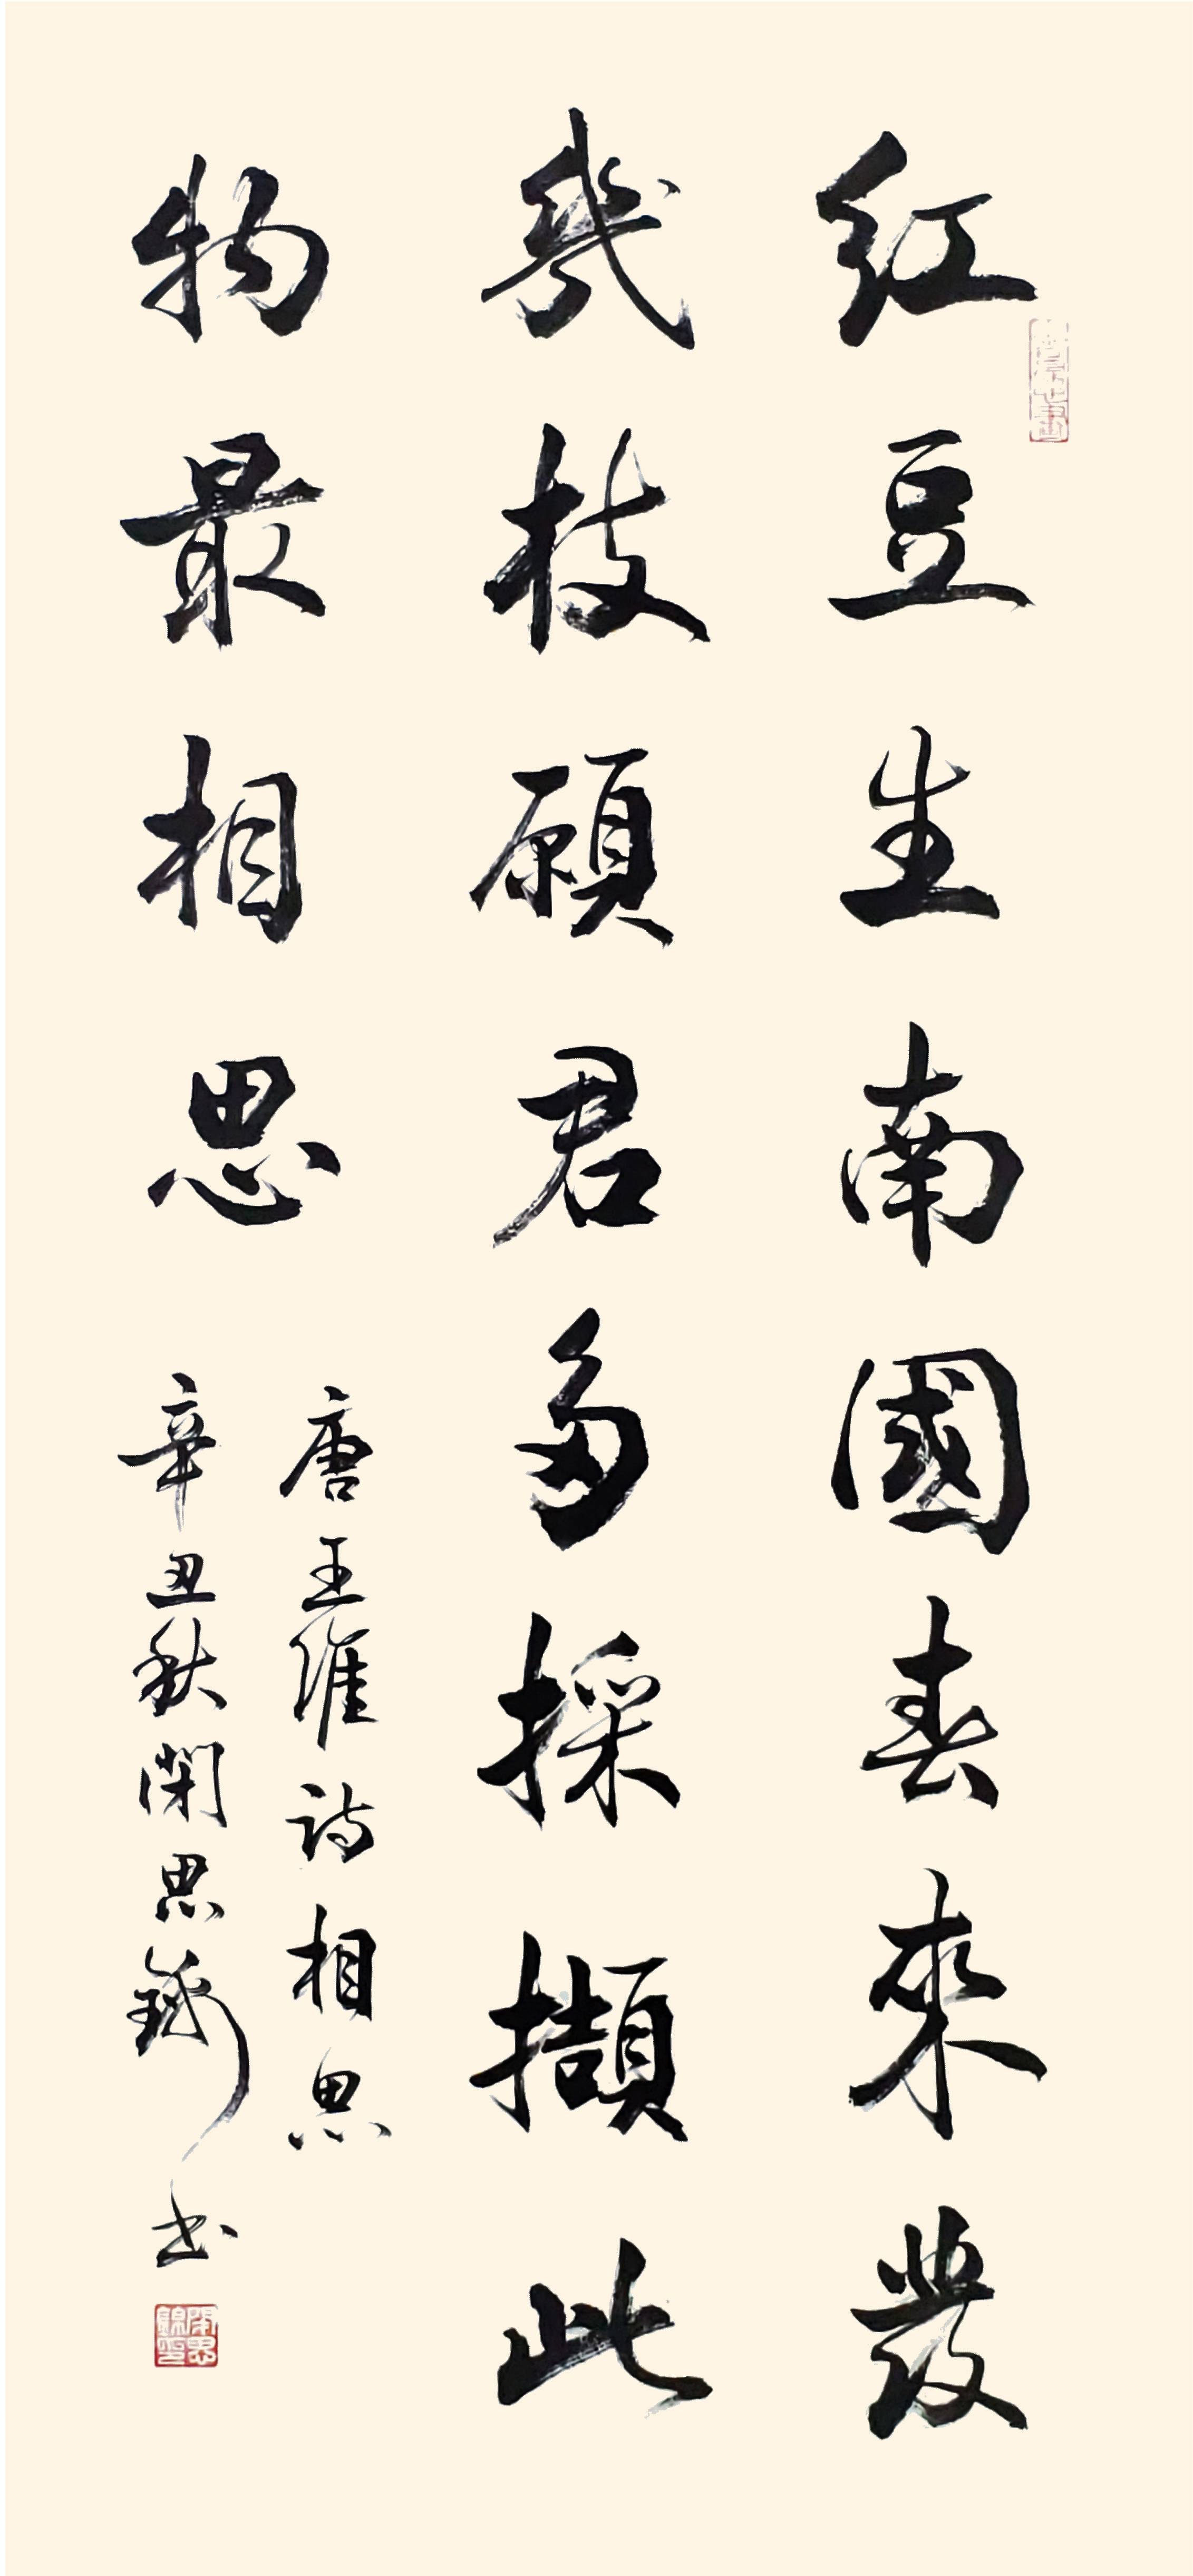 红豆生南國春來發
幾枝願君多採擷此
物最相思
唐王維詩相思
辛丑秋閑思錦书